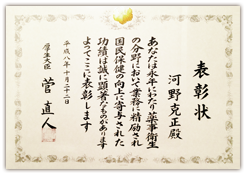 表彰状
河野克正殿
あなたは永年にわたり薬事衛生
の分野において業務に精励され
国民保健の向上に寄与された
功績は誠に顕著なものがあります
よってここに表彰します
平成八年十月二十二日
厚生大臣
菅直人